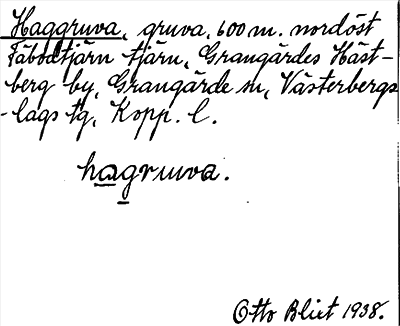 Haggruva, gruva, 600 m. nordöst
Fäbodtjärn tjärn, Grangärdes Häst-
berg by, Grangärde sn, Västerbergs-
-lags tg, Kopp. l.
hagruva.
Otto Blixt 1938.